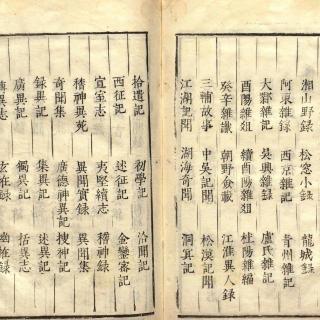 湘山野錄 松窓小錄 龍城錄
東雜錄 西京雜記 青州雜記
大雜記 吳興雜錄 盧氏雜記
酉陽雜俎 續酉陽雜俎 杜陽雜編
癸辛雜識 朝野僉載 江淮異人錄
三補故事 中吳記聞 松漠記聞
江湖記聞 湖海奇聞 洞冥記
拾遺記 初學記 洽聞記
西征記 述征記 金鑾記
宣室志 夷堅續志 稽神錄
稽神異苑 異聞實錄 異聞集
奇聞集 廣德神異記 搜神記
錄異記 集異記 述異記
廣異記 獨異志 括異志
異志 玄怪錄 幽怪錄